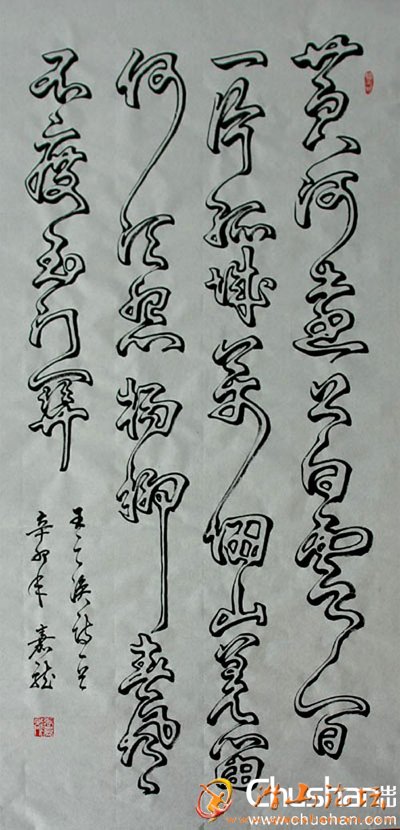 黄河遠上白雲间
一片孤城萬仞山羌笛
何须怨杨柳春風
不度玉门關
王之涣诗一首
辛卯年 嘉龙
Chushan
www.chushan.com